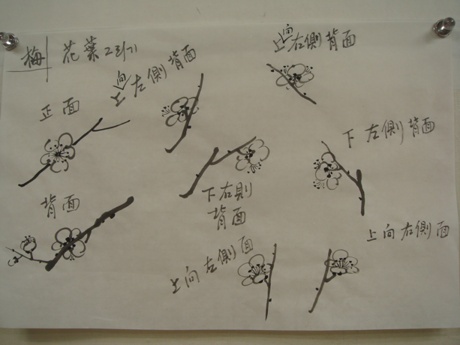 梅 花葉그리기
上向左側背面
上向右側背面
正面
下左側背面
背面
下右則
背面
上向左側面
上向右側面